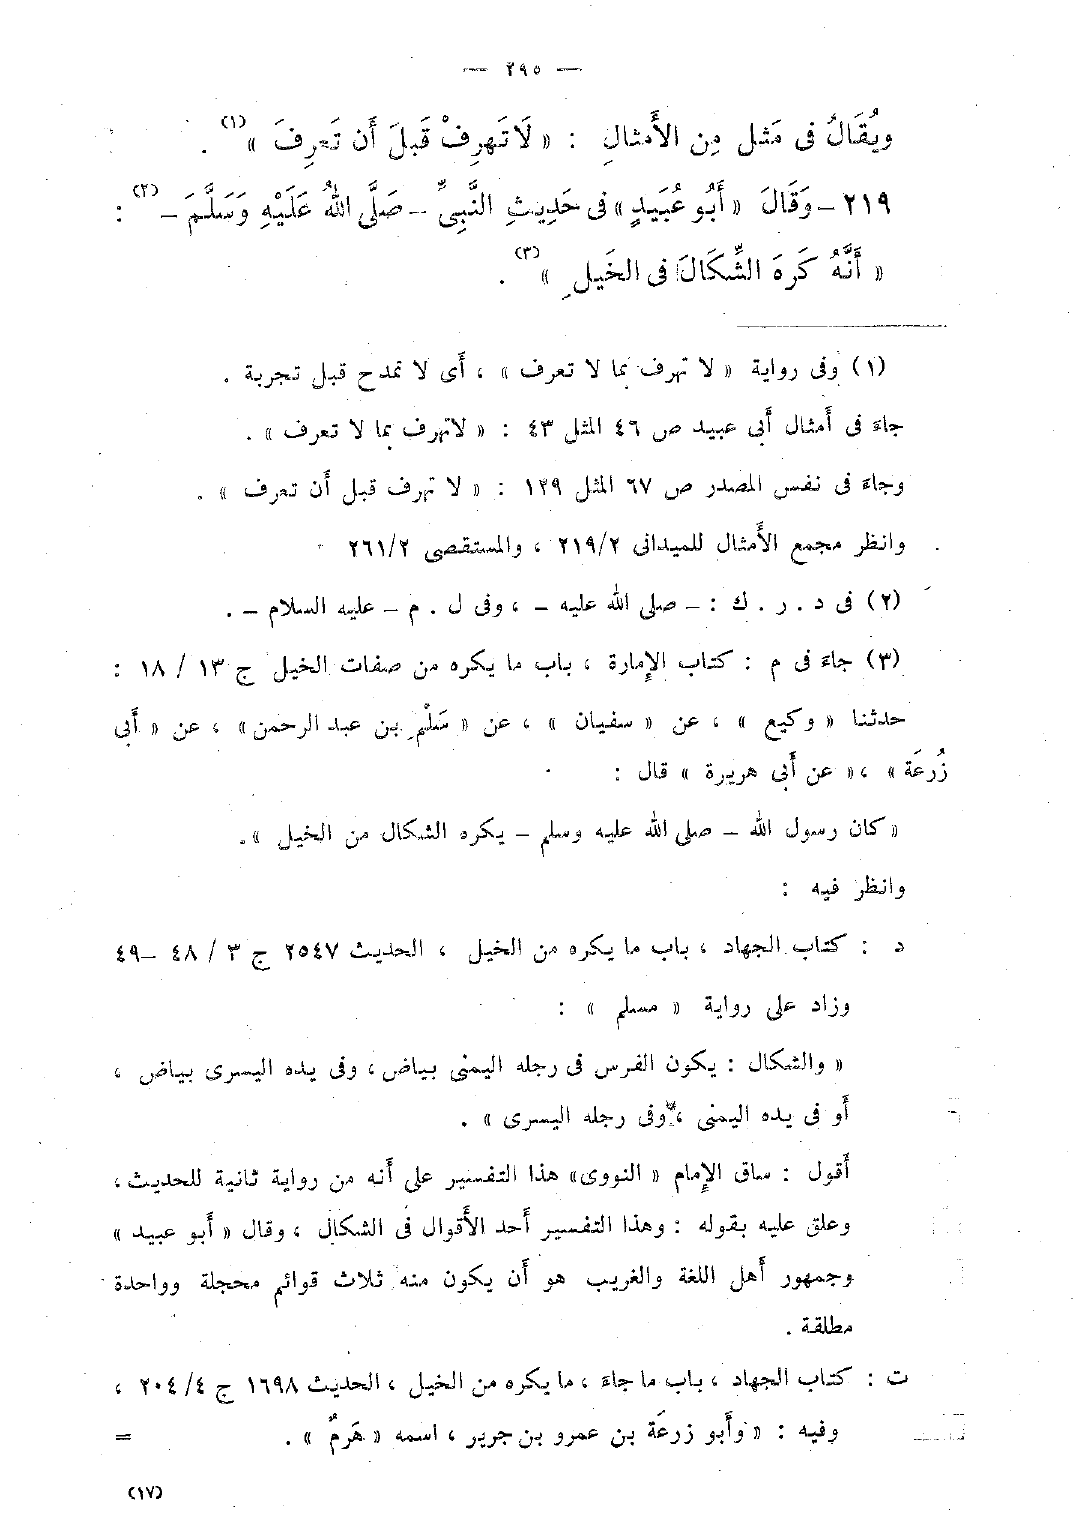 — ٢٩٥ —
ويُقَالُ فى مَثل مِن الأَمثالِ : « لَا تَهرِفْ قَبلَ أَن تَعرِفَ »(١) .
٢١٩ – وَقَالَ « أَبُو عُبَيدٍ » فى حَدِيثِ النَّبِىِّ – صَلَّى اللهُ عَلَيْهِ وَسَلَّمَ –(٢) :
« أَنَّهُ كَرِهَ الشِّكَالَ فى الخَيلِ »(٣) .
(١) وفى رواية « لا تهرف بما لا تعرف » ، أى لا تمدح قبل تجربة .
جاءَ فى أمثال أبى عبيد ص ٤٦ المثل ٤٣ : « لاتهرف بما لا تعرف » .
وجاءَ فى نفس المصدر ص ٦٧ المثل ١٢٩ : « لا تهرف قبل أَن تعرف » .
وانظر مجمع الأَمثال للميدانى ٢١٩/٢ ، والمستقصى ٢٦١/٢
(٢) فى د . ر . ك : – صلى الله عليه – ، وفى ل . م – عليه السلام – .
(٣) جاءَ فى م : كتاب الإِمارة ، باب ما يكره من صفات الخيل ج ١٣ / ١٨ :
حدثنا « وكيع » ، عن « سفيان » ، عن « سَلْم بن عبد الرحمن» ، عن « أَبى
زُرعَة » ،« عن أَبى هريرة » قال :
« كان رسول الله – صلى الله عليه وسلم – يكره الشكال من الخيل » .
وانظر فيه :
د : كتاب الجهاد ، باب ما يكره من الخيل ، الحديث ٢٥٤٧ ج ٣ / ٤٨ – ٤٩
وزاد على رواية « مسلم » :
« والشكال : يكون الفرس فى رجله اليمنى بياض ، وفى يده اليسرى بياض ،
أَو فى يده اليمنى ، وفى رجله اليسرى » .
أَقول : ساق الإِمام « النووى» هذا التفسير على أَنه من رواية ثانية للحديث ،
وعلق عليه بقوله : وهذا التفسير أَحد الأَقوال فى الشكال ، وقال « أَبو عبيد »
وجمهور أَهل اللغة والغريب هو أَن يكون منه ثلاث قوائم محجلة وواحدة
مطلقة .
ت : كتاب الجهاد ، باب ما جاءَ ، ما يكره من الخيل ، الحديث ١٦٩٨ ج ٢٠٤/٤ ،
وفيه : « وأَبو زرعَة بن عمرو بن جرير ، اسمه « هَرِمٌ » . =
(١٧)